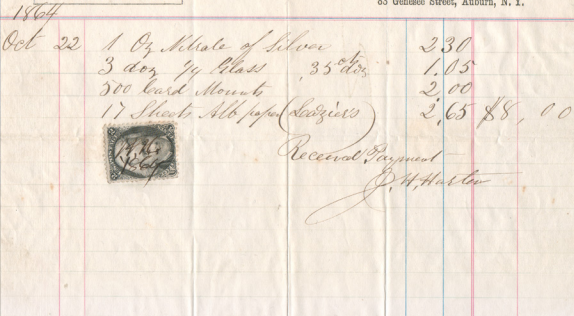 83 Genesee Street, Auburn, N. Y.
1864
Oct 22 1 Oz Nitrate of Silver 2 30
3 doz 1/4 Glass ,35 cts doz 1.05
500 Card Mounts 2,00
17 Sheets Alb paper 2,65 $8,00
Received Payment
J. H.